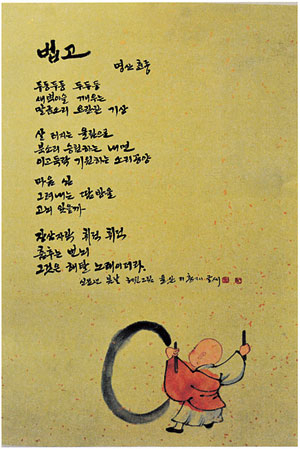 법고
명산
두둥두둥 두두둥
새벽이슬 깨우는
말굽소리 요란한 기상
살 터지는 울림으로
북소리 승천하는 내면
이고득락 기원하는 소리공양
마음 심
그려내는 땀방울
고뇌 있을까
장삼자락 휘적 휘적
춤추는 번뇌
그것은 해탈 노래이더라.
봄날